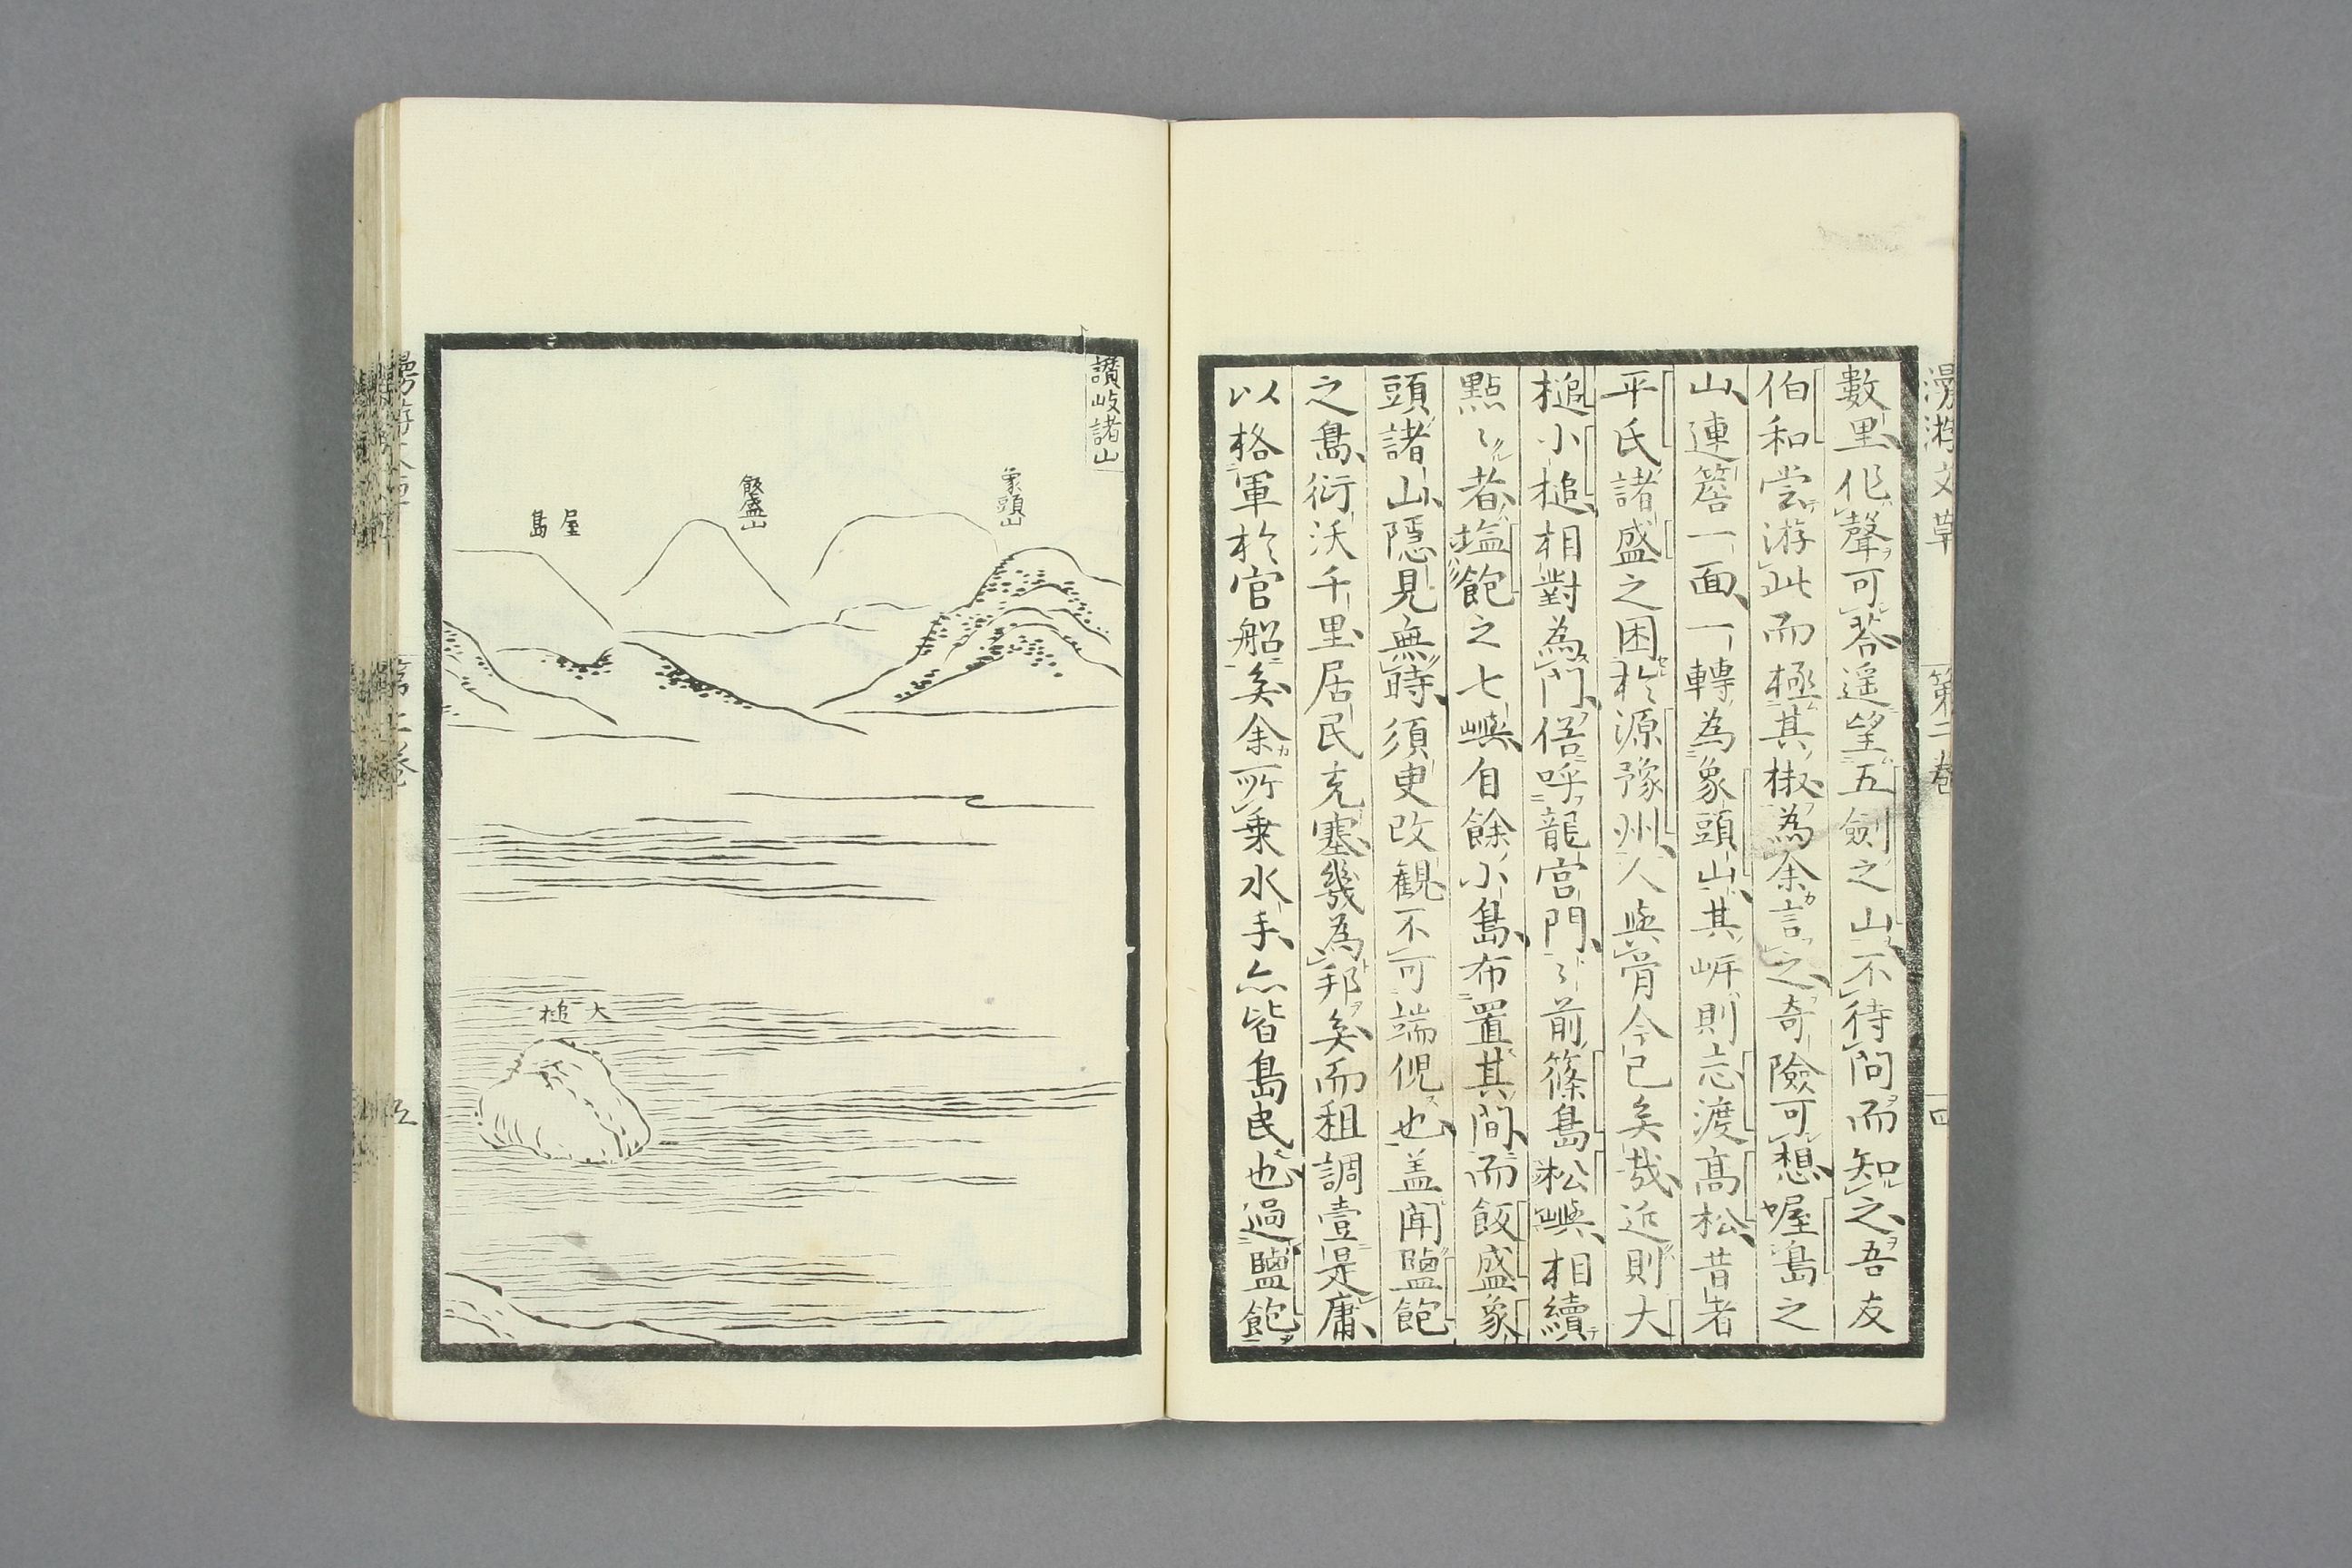 漫游文草
第二卷
四
數里、作聲可答、遥望五劍之山、不待問而知之、吾友
伯和嘗游此而極其椒、為余言之、奇險可想、喔島之
山、連簷一面、一轉為象頭山、其岼則志渡高松、昔者
平氏諸盛之困於源豫州、人與骨今已矣哉、近則大
槌小槌、相對為門、俗呼龍宮門、〻前篠島松嶼、相續
點〻者、塩飽之七嶼、自餘小島、布置其間、而飯盛象
頭諸山、隱見無時、須臾改觀、不可端倪也、盖聞鹽飽
之島、衍沃千里、居民充塞、幾為邦矣、而租調壹是庸、
以格軍於官船矣、余所乗水手、亦皆島民也、過鹽飽
讃岐諸山
象頭山
飯盛山
屋島
大槌
第二卷
五